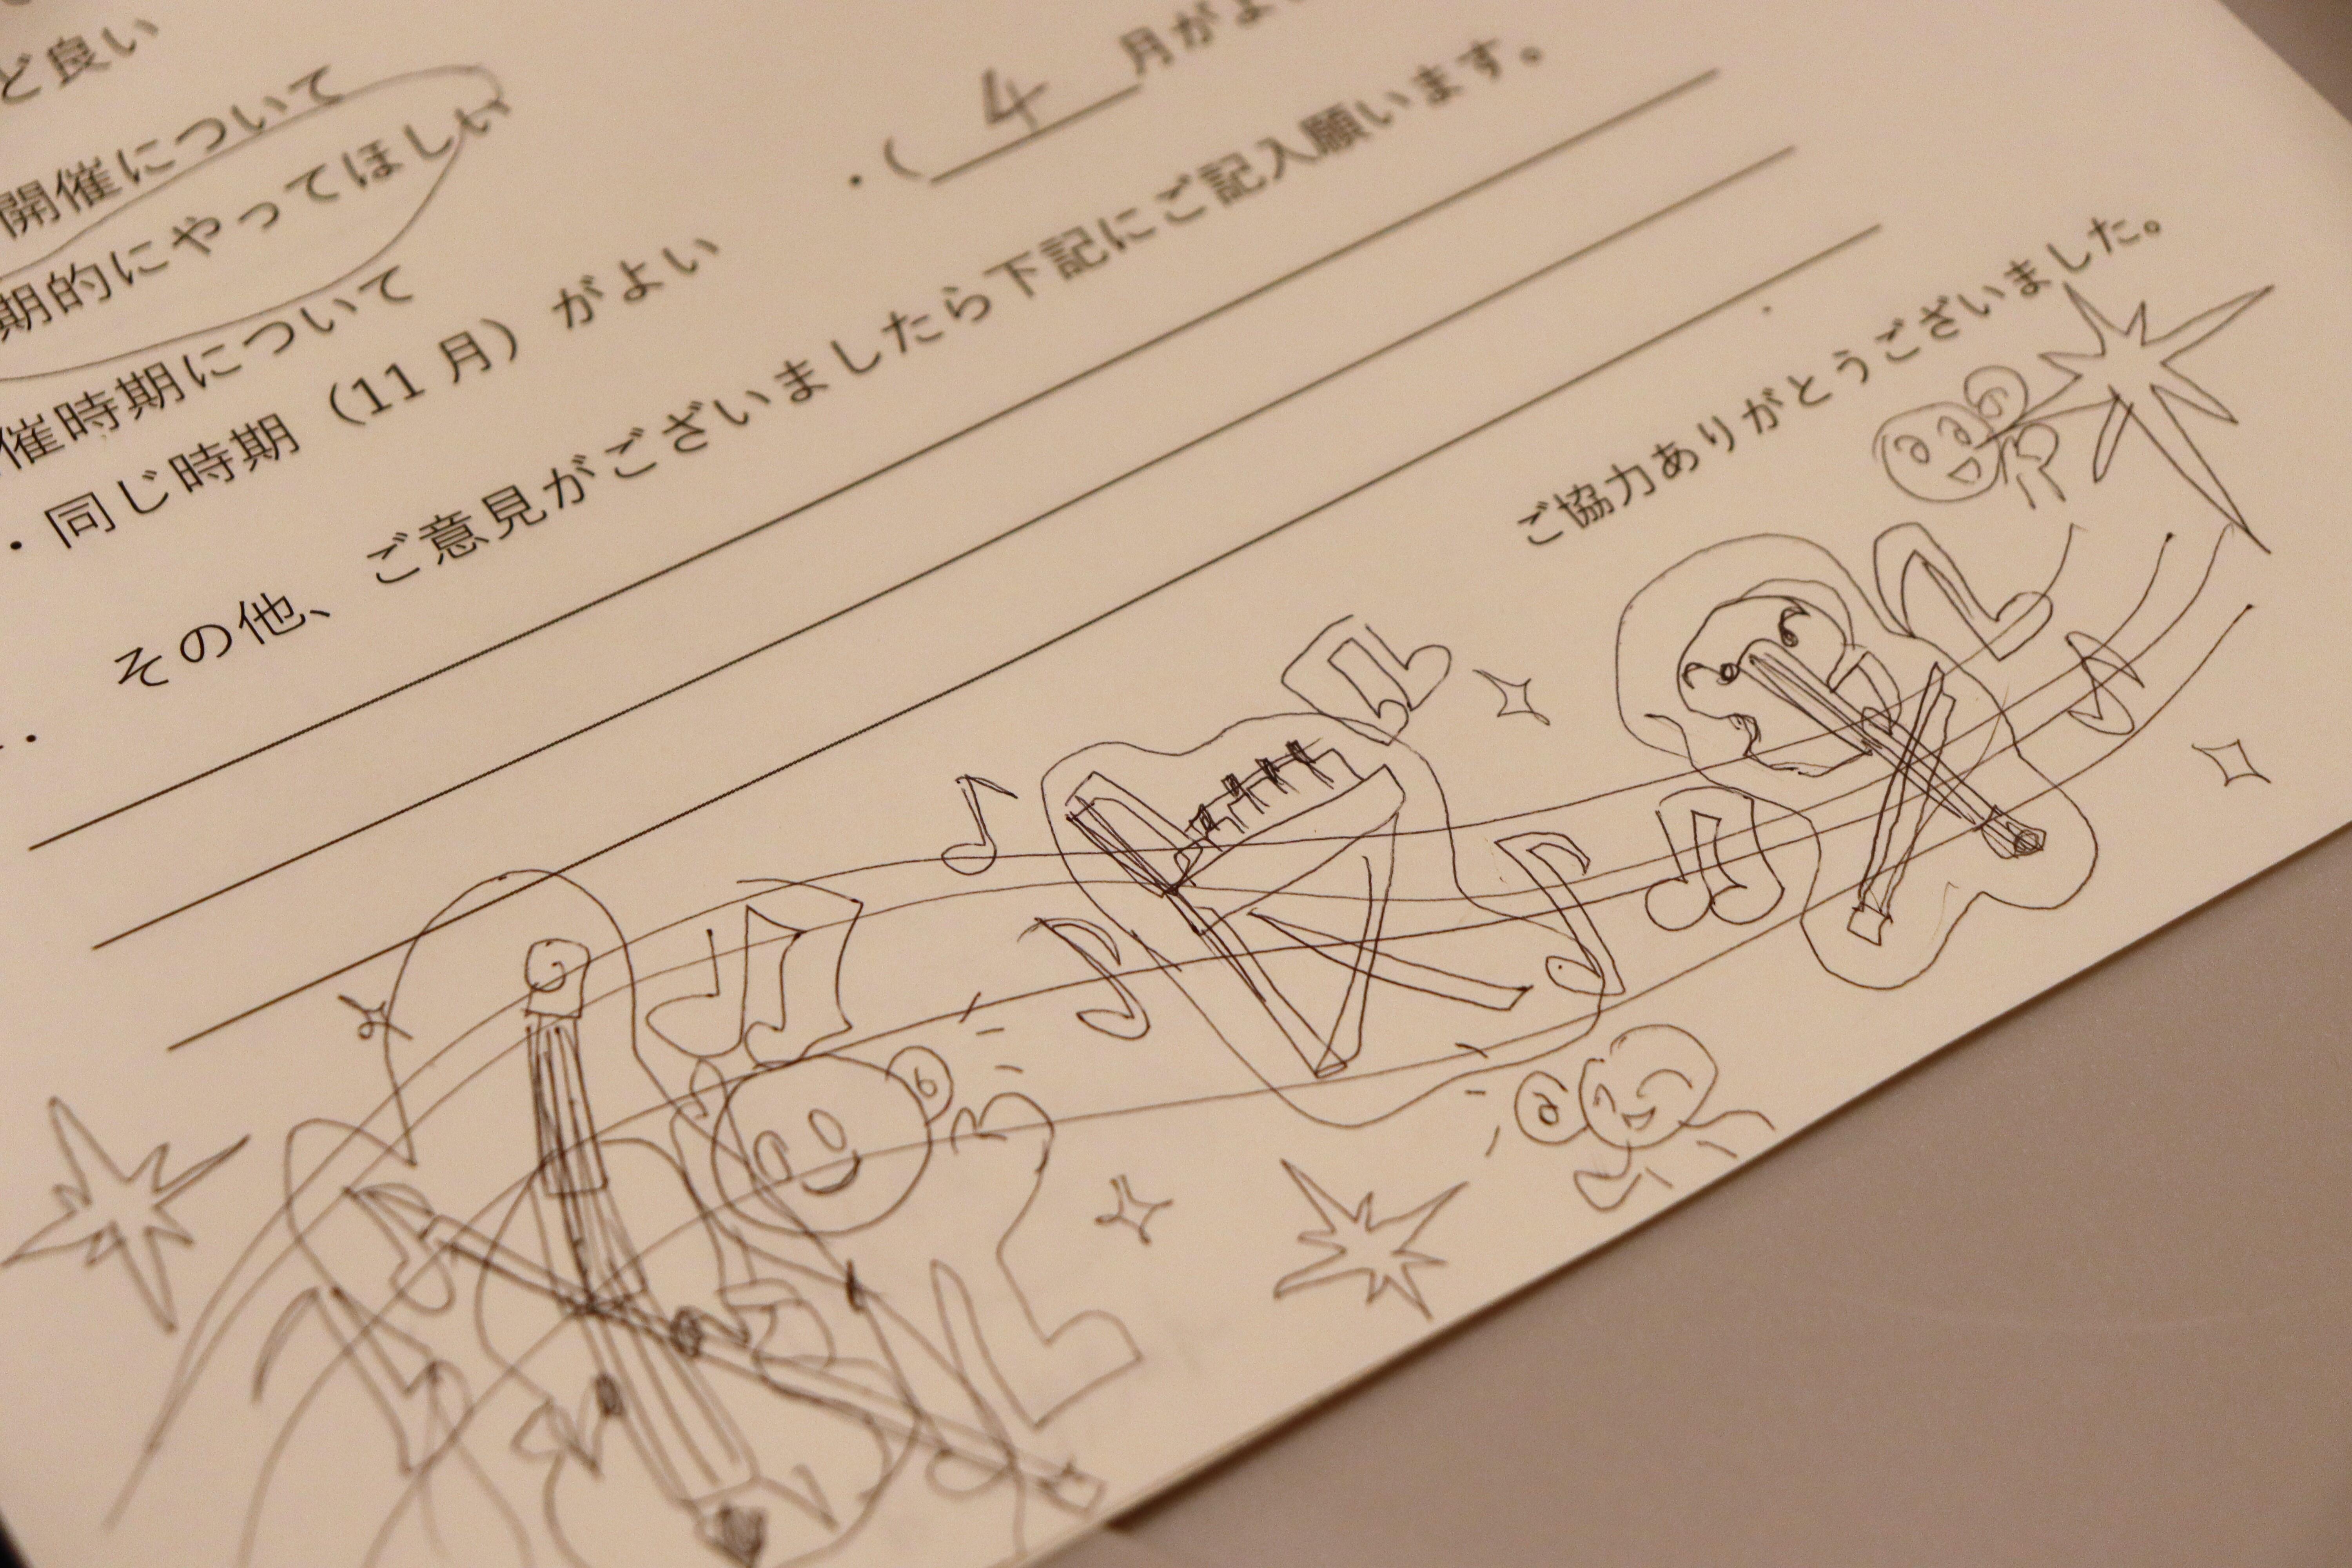 ど良い
開催について
期的にやってほしい
催時期について
・同じ時期（11 月）がよい ・（ 4 月がよい
その他、ご意見がございましたら下記にご記入願います。
ご協力ありがとうございました。